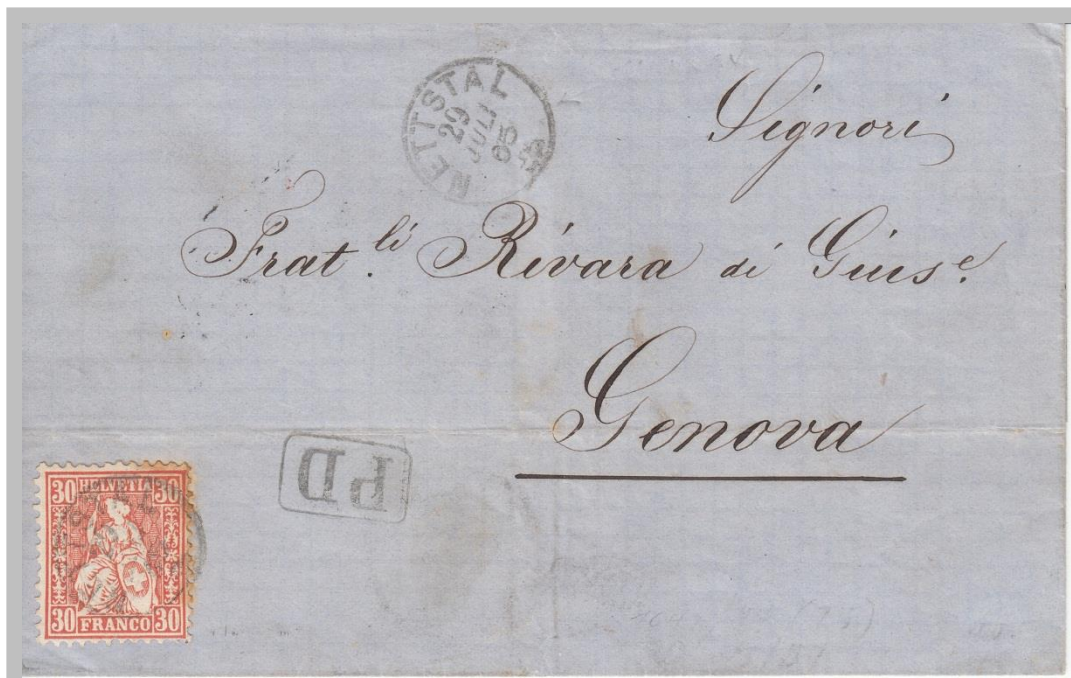 NETTSTAL
29
JULI
65
Signori
Frat.li Rivara di Giuse.
Genova
PD
30 HELVETIA 30
30 FRANCO 30